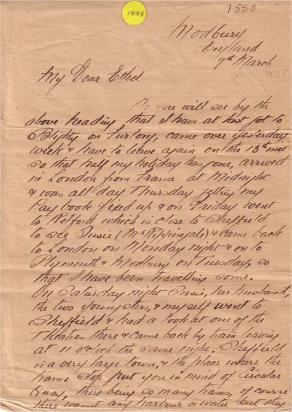 1558
1558
Modbury
England
7th March
My Dear Ethel
You will see by the
above heading that I have at last got to
Blighty on Furlong, came over yesterday
week & have to leave again on the 13th inst
so that half my holiday has gone, arrived
in London from France at Midnight
& was all day Thursday getting my
Pay book fixed up & on Friday went
to Retford which is close to Sheffield
to see Susie (Mrs Rippingale) & came back
to London on Monday night & on to
Plymouth & Modbury on Tuesday, so
that I have been travelling some.
On Saturday night Susie, her husband,
the two youngsters, & myself went to
Sheffield & had a look at one of the
Theatres there & came back by train leaving
at 11 o'clock the same night. Sheffield
is a very large town, & the place where the
trams stop put you in mind of Circular
Quay, there being so many trams, of course
there wasnt any harbour or boats but they